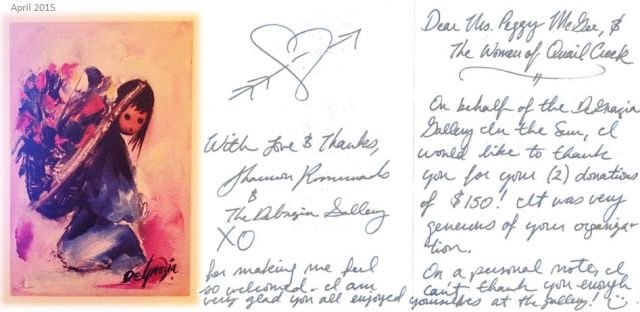 April 2015
DeGrazia
Dear Ms. Peggy McGee, &
The Women of Quail Creek
On behalf of the DeGrazia
Gallery In the Sun, I
would like to thank
you for your (2) donations
of $150! It was very
generous of your organiza-
tion.
On a personal note, I
can't thank you enough
for making me feel
so welcomed - I am
very glad you all enjoyed yourselves at the gallery!
With Love & Thanks,
Shannon
&
The DeGrazia Gallery
XO